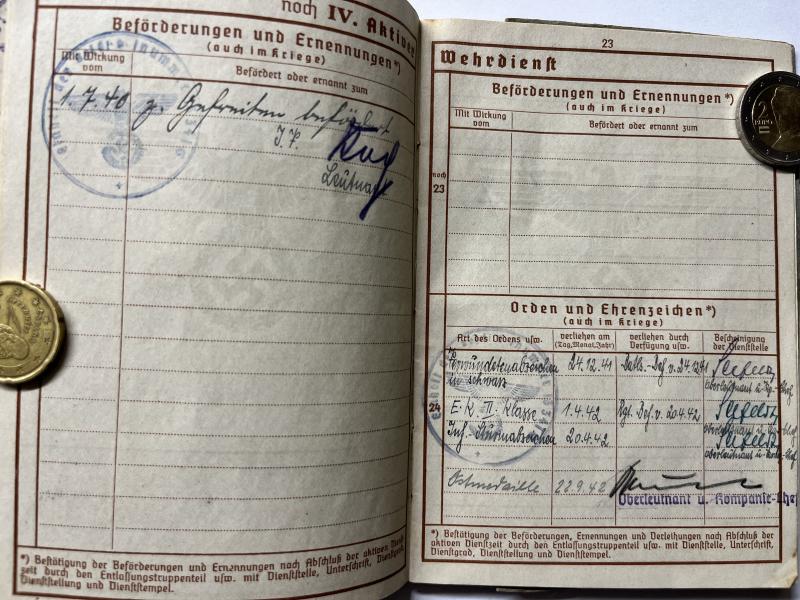 noch IV. Aktiver
Beförderungen und Ernennungen*)
(auch im Kriege)
Mit Wirkung
vom
Befördert oder ernannt zum
1.7.40 z. Gefreiten befördert
Leutnant
*) Bestätigung der Beförderungen und Ernennungen nach Abschluß der aktiven Dienst-
zeit durch den Entlassungstruppenteil usw. mit Dienststelle, Unterschrift, Dienstgrad,
Dienststellung und Dienststempel.
23
Wehrdienst
Beförderungen und Ernennungen*)
(auch im Kriege)
Mit Wirkung
vom
Befördert oder ernannt zum
noch
23
Orden und Ehrenzeichen*)
(auch im Kriege)
Art des Ordens usw.
verliehen am
(Tag, Monat, Jahr)
verliehen durch
Verfügung usw.
Bescheinigung
der Dienststelle
Verwundetenabzeichen 24.12.41 Batls.-Bef. v. 24.12.41
in schwarz Oberleutnant u. Kp.-Chef
24 E.K. II. Klasse 1.4.42 Rgt. Bef. v. 20.4.42
Oberleutnant u. Komp.-Chef
Inf.-Sturmabzeichen 20.4.42
Oberleutnant u. Komp.-Chef
Ostmedaille 22.9.42
Oberleutnant u. Kompanie-Chef
*) Bestätigung der Beförderungen, Ernennungen und Verleihungen nach Abschluß der
aktiven Dienstzeit durch den Entlassungstruppenteil usw. mit Dienststelle, Unterschrift,
Dienstgrad, Dienststellung und Dienststempel.